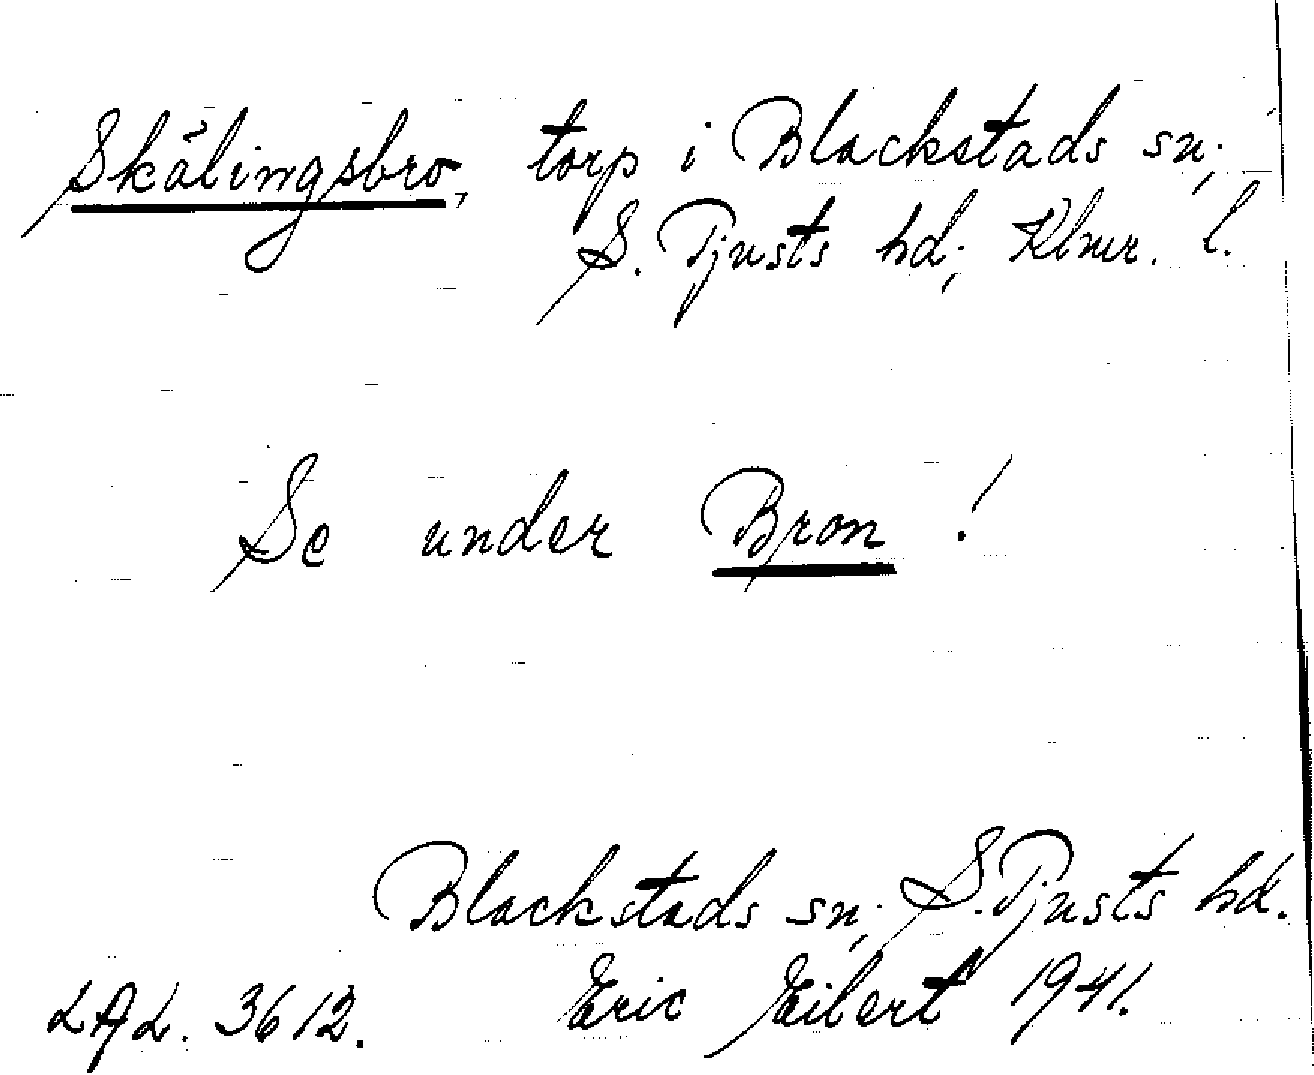 Skålingsbro, torp i Blackstads sn;
S. Tjusts hd; Klmr. l.
Se under Bron!
Blackstads sn; S. Tjusts hd.
LAL. 3612. Eric Eilert 1941.